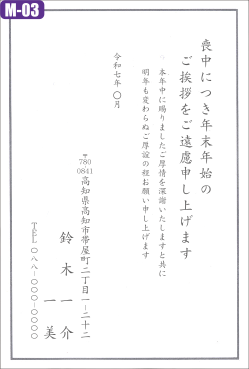 M-03
喪中につき年末年始の
ご挨拶をご遠慮申し上げます
本年中に賜りましたご厚情を深謝いたしますと共に
明年も変わらぬご厚誼の程お願い申し上げます
令和七年〇月
〒780-0841
高知県高知市帯屋町二丁目一-二十二
鈴木一介
一美
TEL 〇八八-〇〇〇-〇〇〇〇